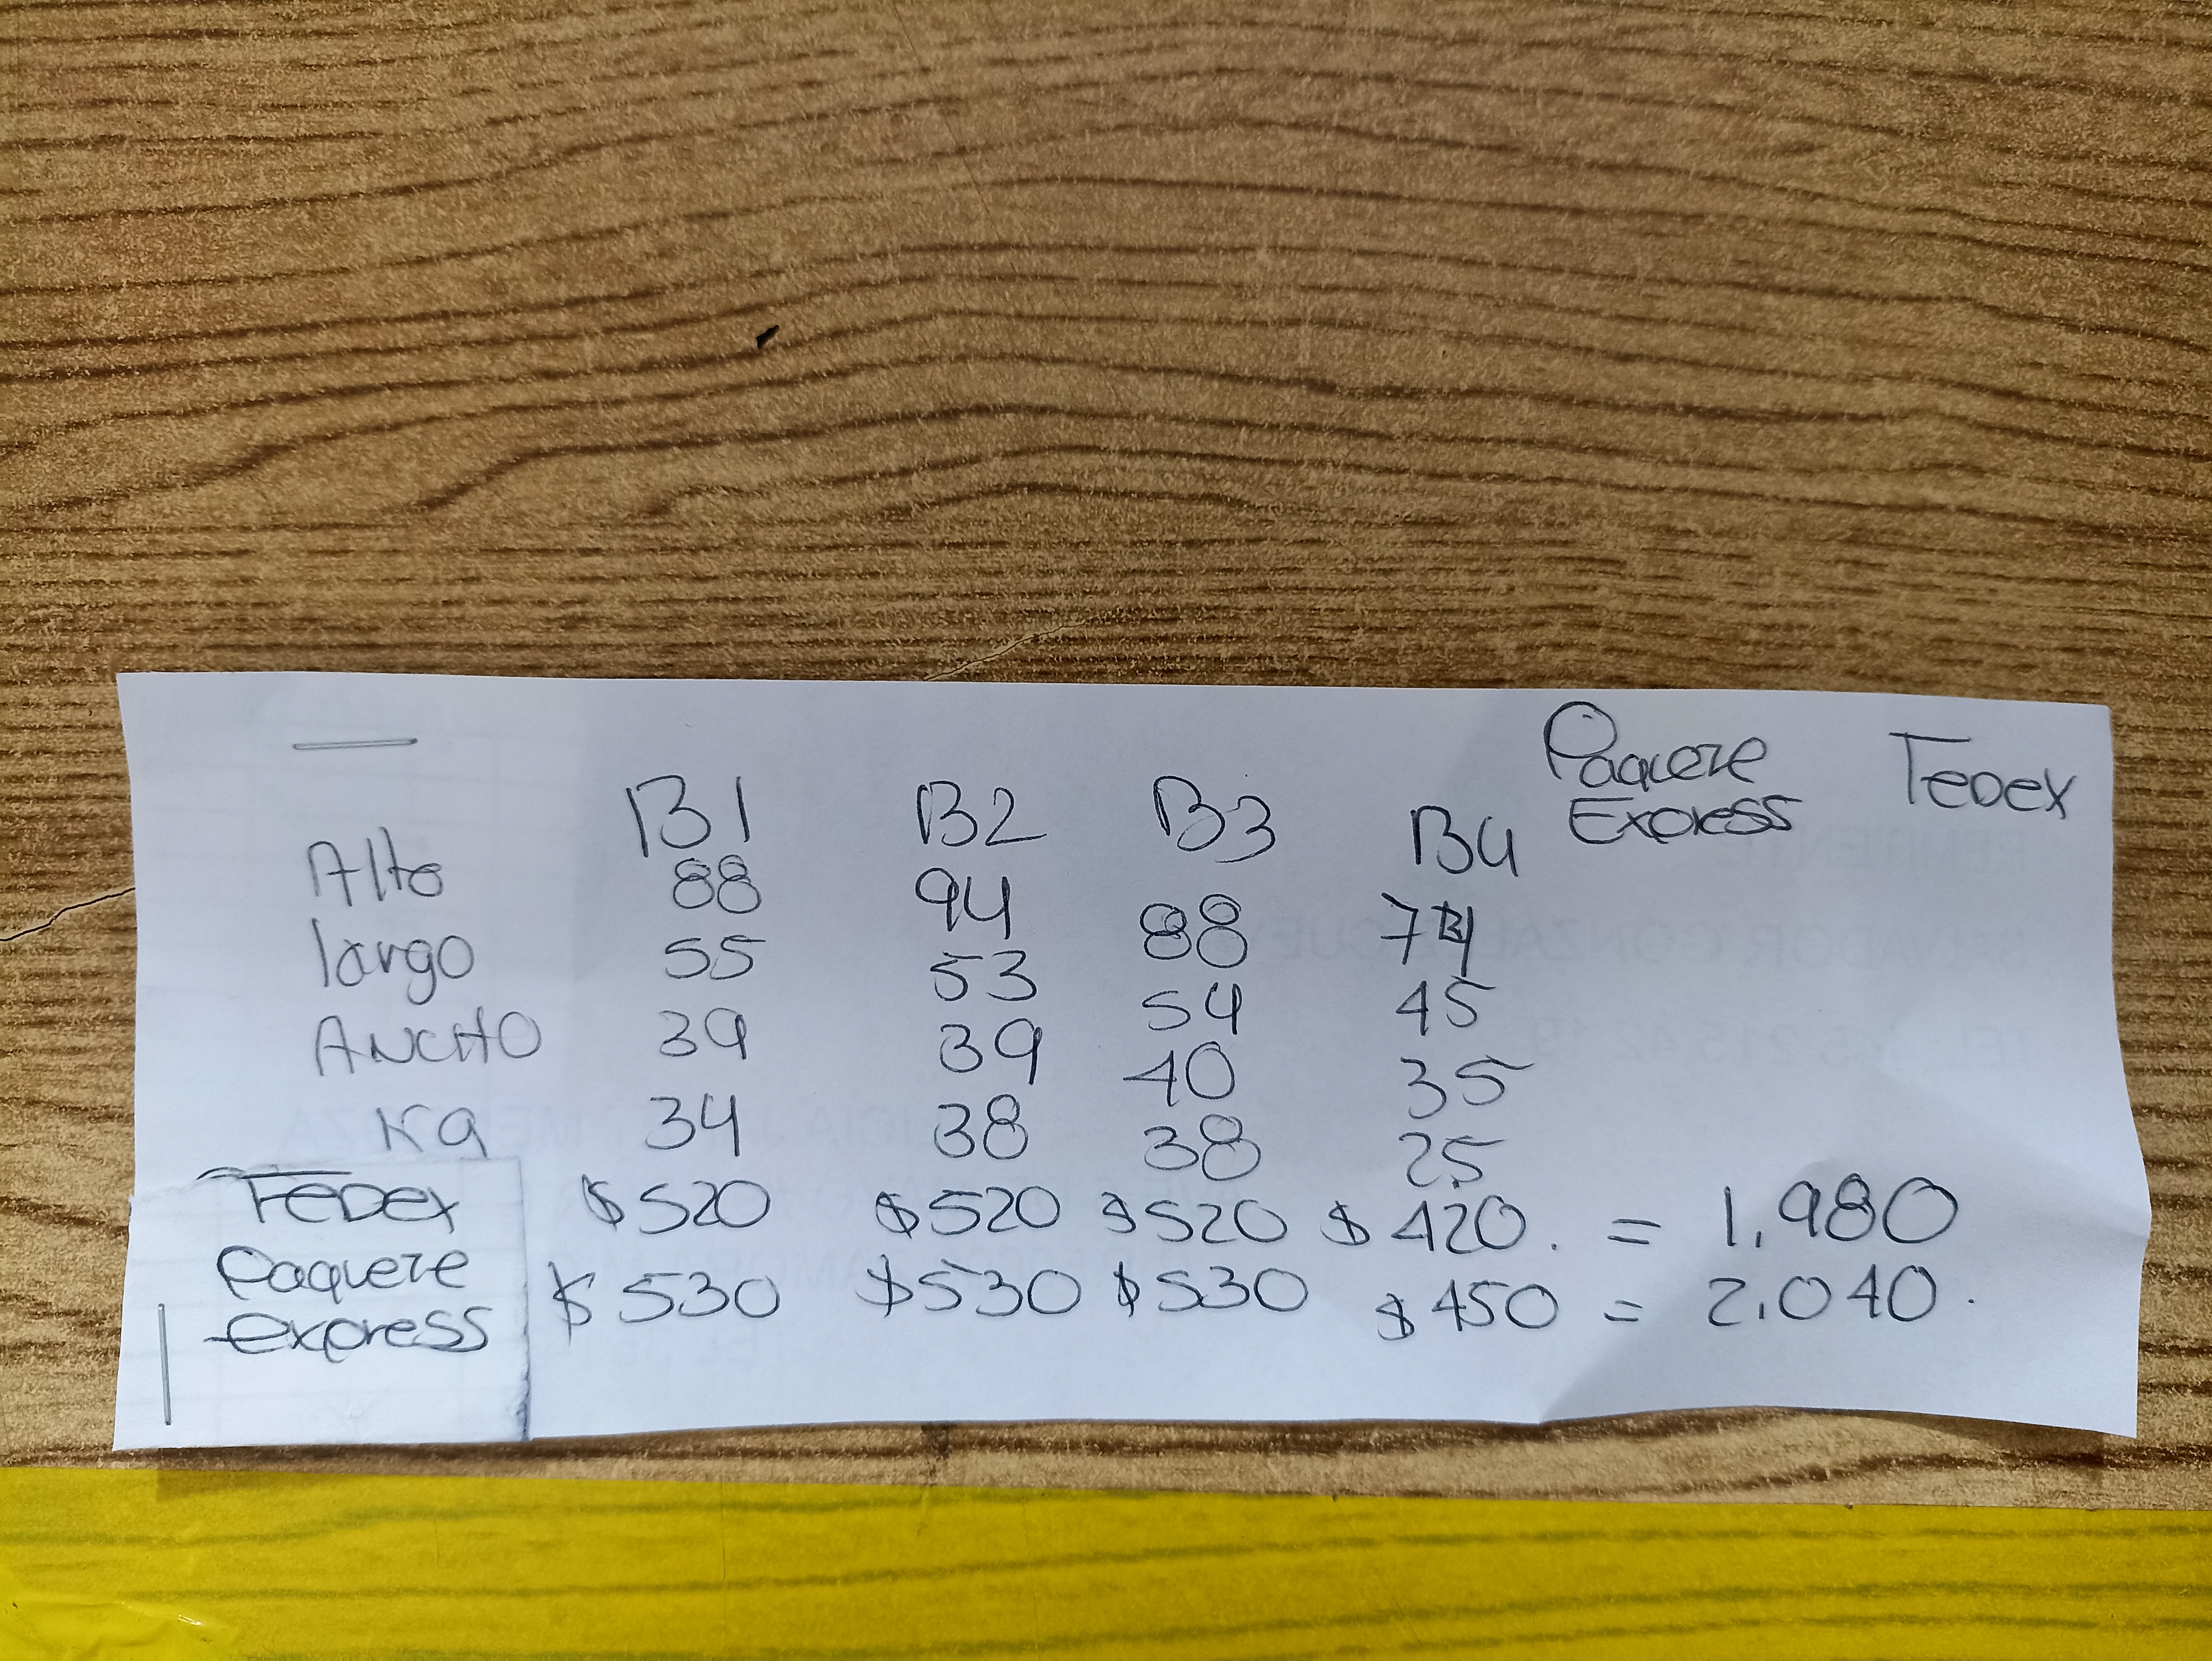 Paquete Express Fedex
B1 B2 B3 B4
Alto 88 94 88 74
largo 55 53 54 45
ANCHO 39 39 40 35
Kg 34 38 38 25
FEDEX $520 $520 $520 $420. = 1.980
Paquete express $530 $530 $530 $450 = 2.040.